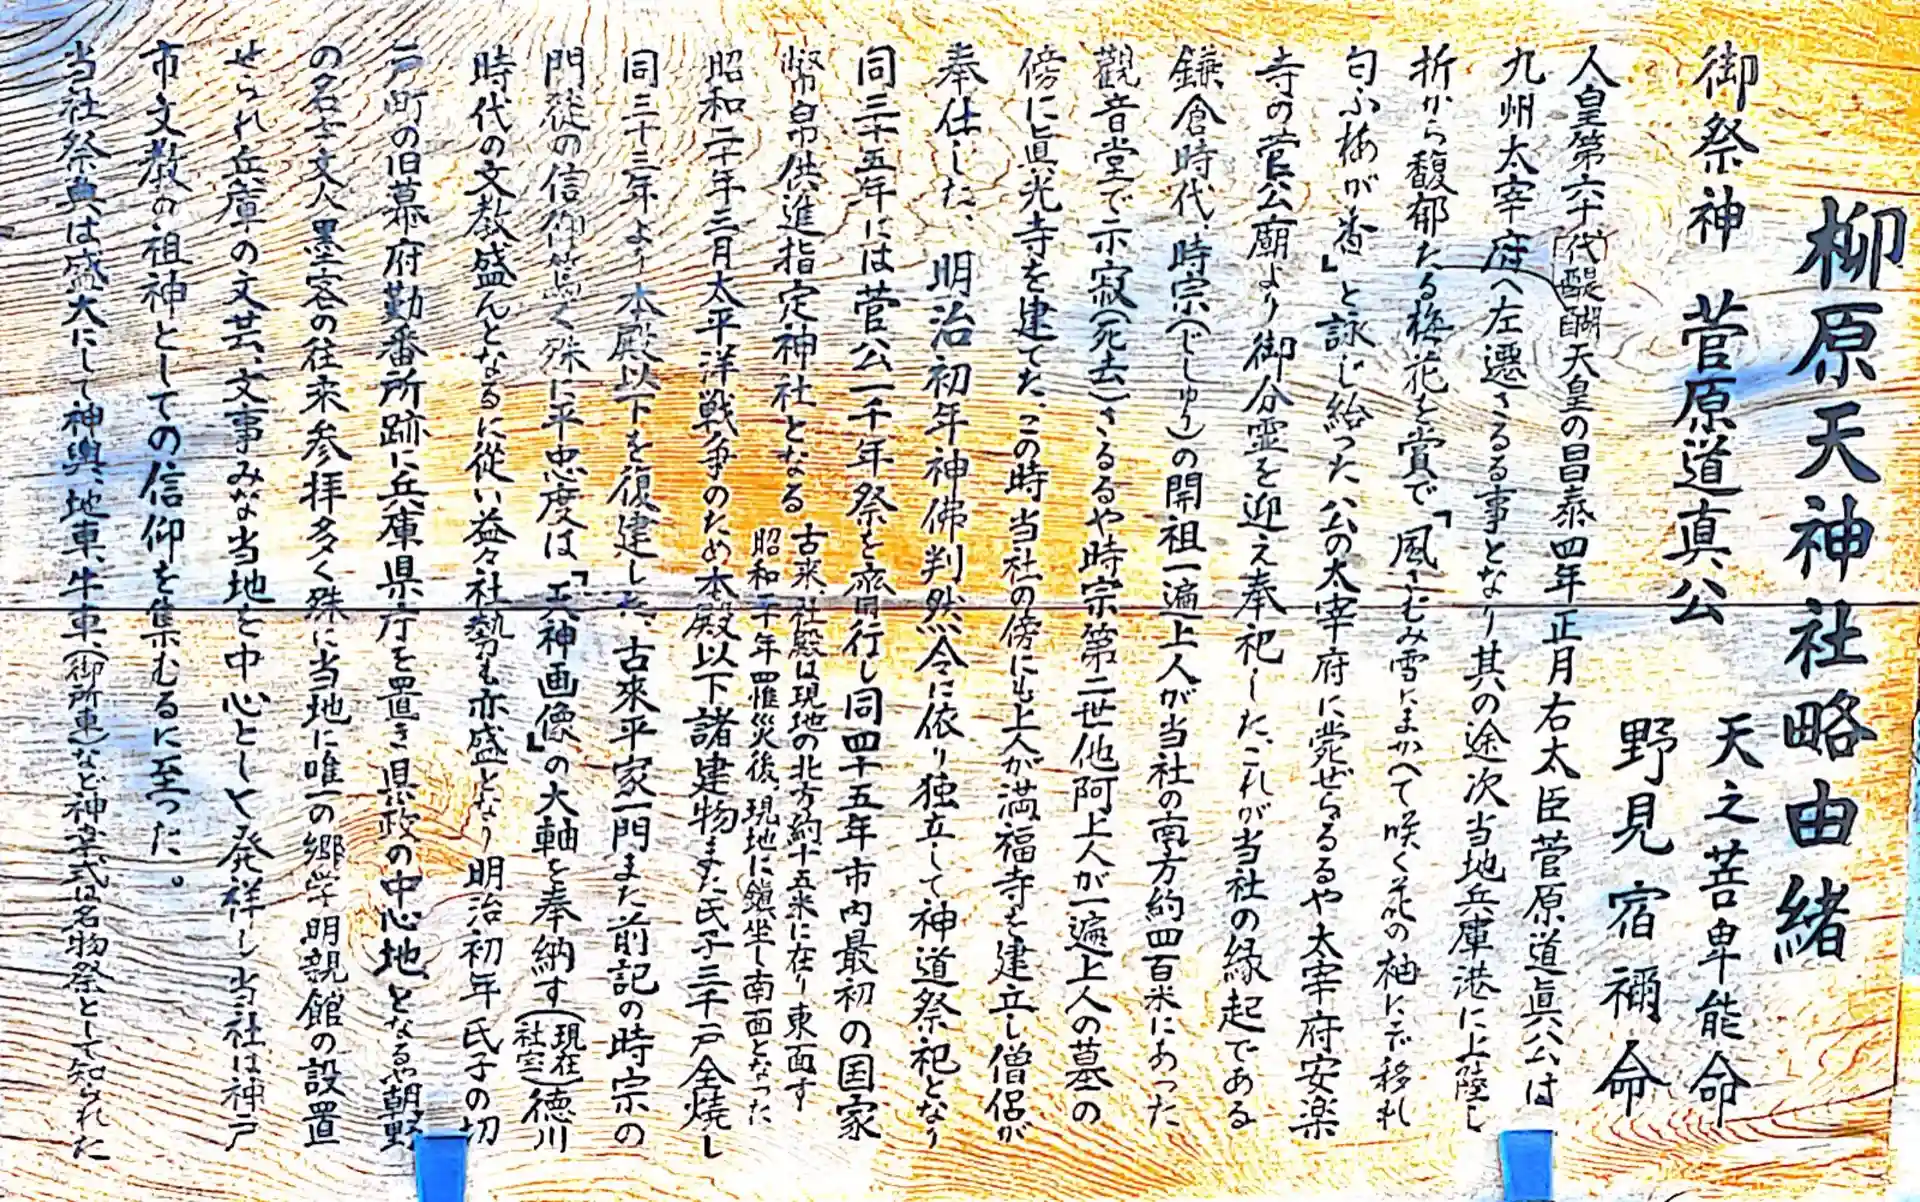 柳原天神社略由緒
御祭神 菅原道真公
天之菩卑能命
野見宿禰命
人皇第六十代醍醐天皇の昌泰四年正月右太臣菅原道眞公は
九州太宰府へ左遷さるる事となり其の途次当地兵庫港に上陸し
折から馥郁たる梅花を賞で『風さむみ雪にまかへて咲く花の袖にぞ移れ
匂ふ梅が香』と詠じ給った 公の太宰府に薨ぜらるるや太宰府安楽
寺の菅公廟より御分霊を迎え奉祀した、これが当社の縁起である
鎌倉時代、時宗(じしゅう)の開祖一遍上人が当社の南方約四百米にあった
觀音堂で示寂(死去)さるるや時宗第二世他阿上人が一遍上人の墓の
傍に眞光寺を建てた、この時当社の傍にも上人が満福寺を建立し僧侶が
奉仕した、明治初年神佛判然令に依り独立して神道祭祀となり
同三十五年には菅公一千年祭を齊行し同四十五年市内最初の国家
幣帛供進指定神社となる
古来、社殿は現地の北方約十五米に在り東面す
昭和二十年罹災後、現地に鎮坐し南面となった
昭和二十年三月太平洋戦争のため本殿以下諸建物また氏子三千戸全焼し
同三十三年より本殿以下を復建した、古來平家一門また前記の時宗の
門徒の信仰篤く殊に平忠度は『天神画像』の大軸を奉納す(現在社宝)徳川
時代の文教盛んとなるに從い益々社勢も亦盛となり明治初年氏子の切
戸町の旧幕府勤番所跡に兵庫県庁を置き県政の中心地となるや朝野
の名士文人墨客の往来参拝多く殊に当地に唯一の郷学明親館の設置
せられ兵庫の文芸、文事みな当地を中心として発祥し当社は神戸
市文教の祖神としての信仰を集むるに至った。
当社祭典は盛大にして神輿、地車、牛車(御所車)など神幸式は名物祭として知られた